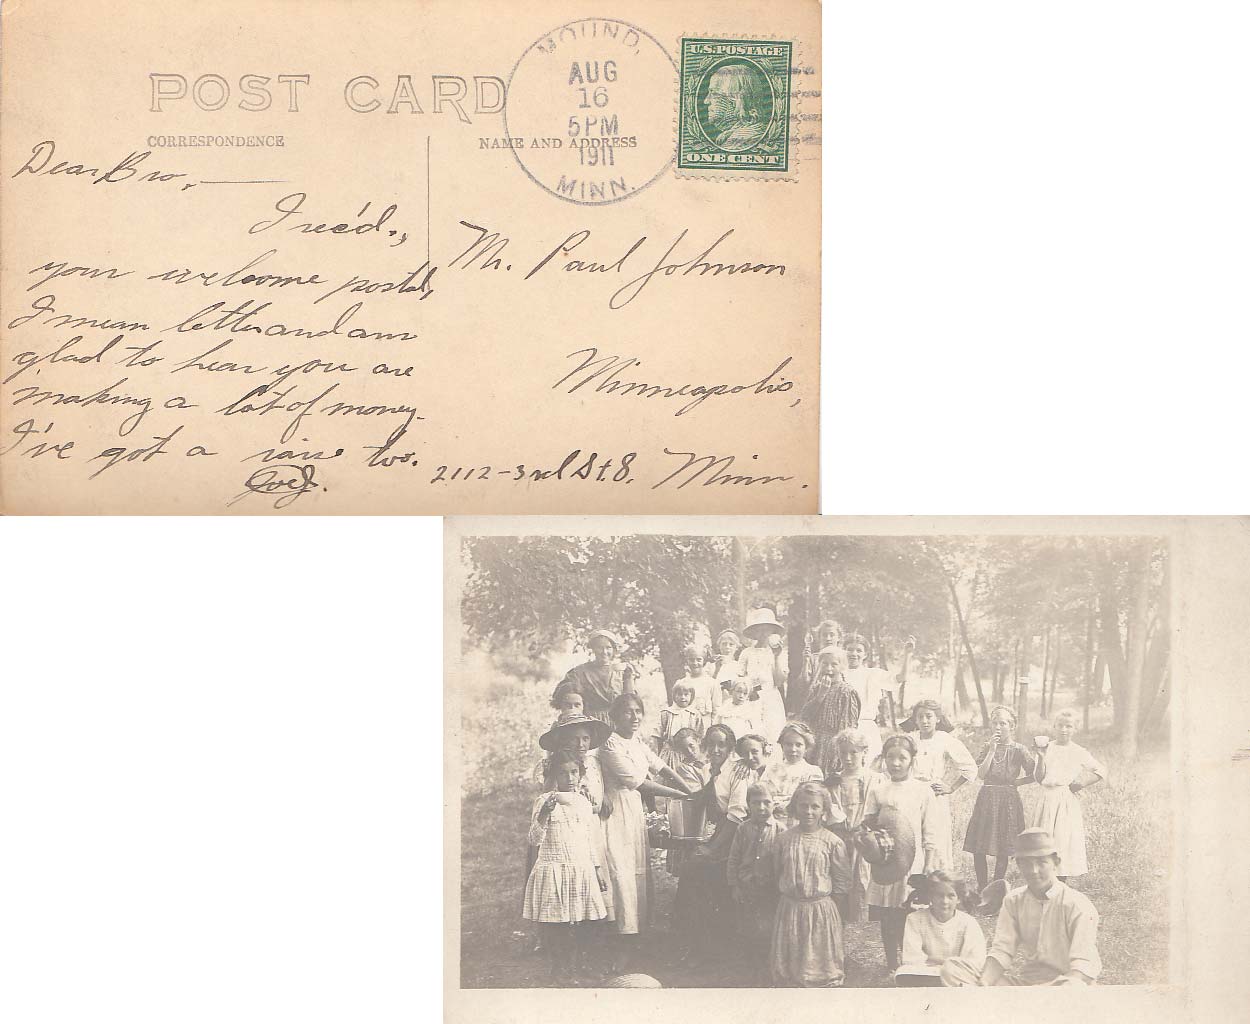 POST CARD
CORRESPONDENCE
NAME AND ADDRESS
MOUND,
AUG
16
5PM
1911
MINN.
U.S. POSTAGE
ONE CENT
Dear Bro,
I rec'd.,
your welcome postal,
I mean letter and am
glad to hear you are
making a lot of money.
I've got a raise too.
Joe J.
Mr. Paul Johnson
Minneapolis,
2112-3rd St. S. Minn.